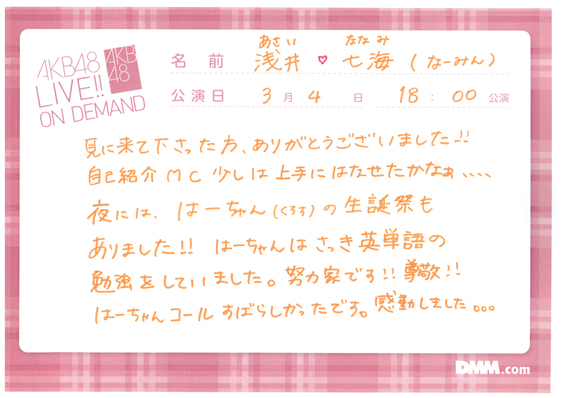 AKB48
LIVE!!
ON DEMAND
AKB
48
あさい ななみ
名前 浅井♡七海(なーみん)
公演日 3月4日 18:00公演
見に来て下さった方、ありがとうございました!!
自己紹介MC少しは上手にはなせたかなぁ、、、、
夜には、はーちゃん(くろす)の生誕祭も
ありました!! はーちゃんはさっき英単語の
勉強をしていました。努力家です!!尊敬!!
はーちゃんコールすばらしかったです。感動しました...
DMM.com